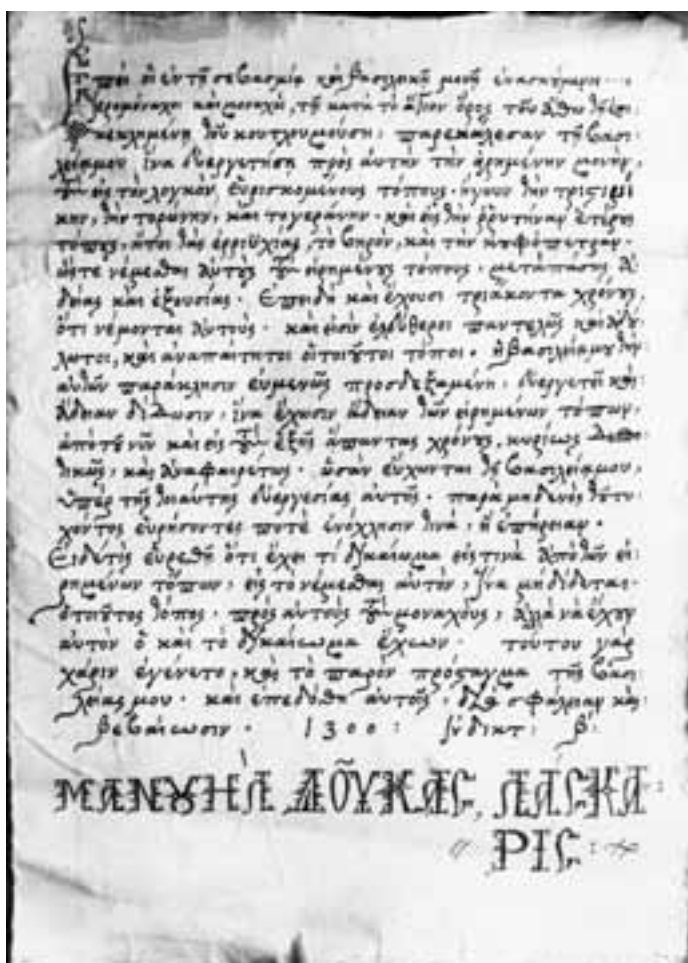 Ἐπεὶ οἱ ἐν τῇ σεβασμίᾳ καὶ βασιλικῇ μονῇ ἐνασκούμενοι
ἱερομόναχοι καὶ μοναχοί, τῇ κατὰ τὸ ἅγιον ὄρος τοῦ Ἄθω
κεκλημένῃ τοῦ κουτλουμούση· παρεκάλεσαν τὴν βασι-
λείαν μου ἵνα εὐεργετήσῃ πρὸς αὐτὴν τὴν εἰρημένην μονὴν,
τοὺς εἰς τὸν λογκὸν εὑρισκομένους τόπους· ἤγουν τὴν
τὴν τορώνην, καὶ τὸ γεράνην· καὶ εἰς τὴν ἑτέρους
τόπους, ἤτοι τὰς ἐρρινχίας, τὸ ξηρὸν, καὶ τὴν κυφόπετραν·
ὥστε νέμεσθαι αὐτοὺς τοὺς εἰρημένους τόπους· μετὰ πάσης ἀ-
δείας καὶ ἐξουσίας· Ἐπειδὴ καὶ ἔχουσι τριάκοντα χρόνους,
ὅτι νέμονται αὐτούς· καὶ εἰσὶν ἐλεύθεροι παντελῶς καὶ
καὶ ἀναπαίτητοι οἱ τοιοῦτοι τόποι· ἡ βασιλεία μου τὴν
αὐτῶν παράκλησιν εὐμενῶς προσδεξαμένη, εὐεργετεῖ καὶ
ἄδειαν δίδωσιν, ἵνα ἔχωσιν ἄδειαν τῶν εἰρημένων τόπων,
ἀπὸ τοῦ νῦν καὶ εἰς τοὺς ἑξῆς ἅπαντας χρόνους, κυρίως
καὶ ἀναφαιρέτως· ὡσὰν εὔχωνται τῆς βασιλείας μου,
ὑπὲρ τῆς τοιαύτης εὐεργεσίας αὐτῆς· παρὰ μηδενὸς τῶν τυ-
χόντος εὑρήσοντες ποτὲ ἐνόχλησιν τινὰ, ἢ ἐπήρειαν·
Εἰ δέ τις εὑρεθῇ ὅτι ἔχει τί δικαίωμα εἰς τινὰ ἀπὸ τῶν εἰ-
ρημένων τόπων, εἰς τὸ νέμεσθαι αὐτὸν, ἵνα μὴ δίδεται
ὁ τοιοῦτος τόπος· πρὸς αὐτοὺς τοὺς μοναχοὺς, ἀλλὰ νὰ ἔχῃ
αὐτὸν ὁ καὶ τὸ δικαίωμα ἔχων· τούτου γὰρ
χάριν ἐγένετο, καὶ τὸ παρὸν πρόσταγμα τῆς βασι-
λείας μου· καὶ ἐπεδόθη αὐτοῖς, δι' ἀσφάλειαν καὶ
βεβαίωσιν· 1300: ἰνδικτ: β:
ΜΑΝΟΥΗᾺΛ ΔΟΥ͂ΚΑΣ, ΛΆΣΚΑ:
ΡΙΣ: